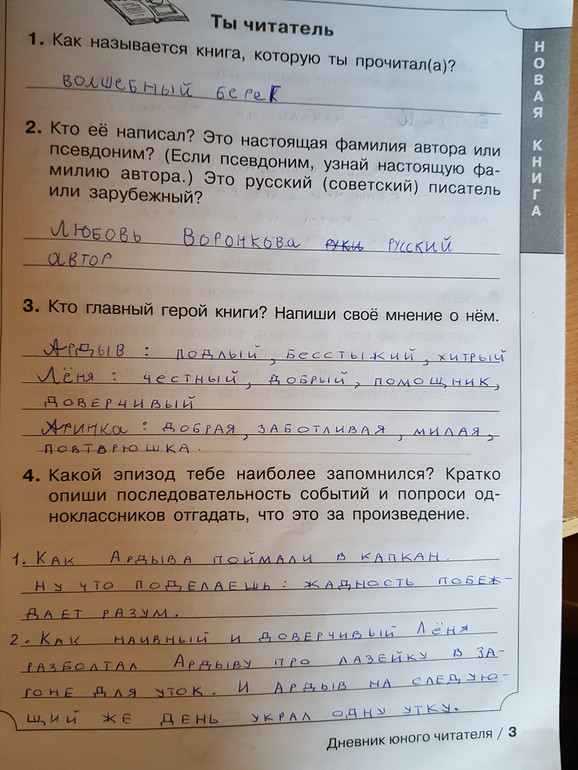 Ты читатель
1. Как называется книга, которую ты прочитал(а)?
ВОЛШЕБНЫЙ БЕРЕГ
2. Кто её написал? Это настоящая фамилия автора или
псевдоним? (Если псевдоним, узнай настоящую фа-
милию автора.) Это русский (советский) писатель
или зарубежный?
ЛЮБОВЬ ВОРОНКОВА РУССКИЙ
АВТОР
3. Кто главный герой книги? Напиши своё мнение о нём.
АРДЫВ: ПОДЛЫЙ, БЕССТЫЖИЙ, ХИТРЫЙ
Лёня: ЧЕСТНЫЙ, ДОБРЫЙ, ПОМОЩНИК,
ДОВЕРЧИВЫЙ
АРИНКА: ДОБРАЯ, ЗАБОТЛИВАЯ, МИЛАЯ,
4. Какой эпизод тебе наиболее запомнился? Кратко
опиши последовательность событий и попроси од-
ноклассников отгадать, что это за произведение.
1. КАК АРДЫВА ПОЙМАЛИ В КАПКАН.
НУ ЧТО ПОДЕЛАЕШЬ: ЖАДНОСТЬ ПОБЕЖ-
ДАЕТ РАЗУМ.
2. КАК НАИВНЫЙ И ДОВЕРЧИВЫЙ Лёня
РАЗБОЛТАЛ АРДЫВУ ПРО ЛАЗЕЙКУ В ЗА-
ГОНЕ ДЛЯ УТОК. И АРДЫВ НА СЛЕДУЮ-
ЩИЙ ЖЕ ДЕНЬ УКРАЛ ОДНУ УТКУ.
Дневник юного читателя / 3
НОВАЯ КНИГА